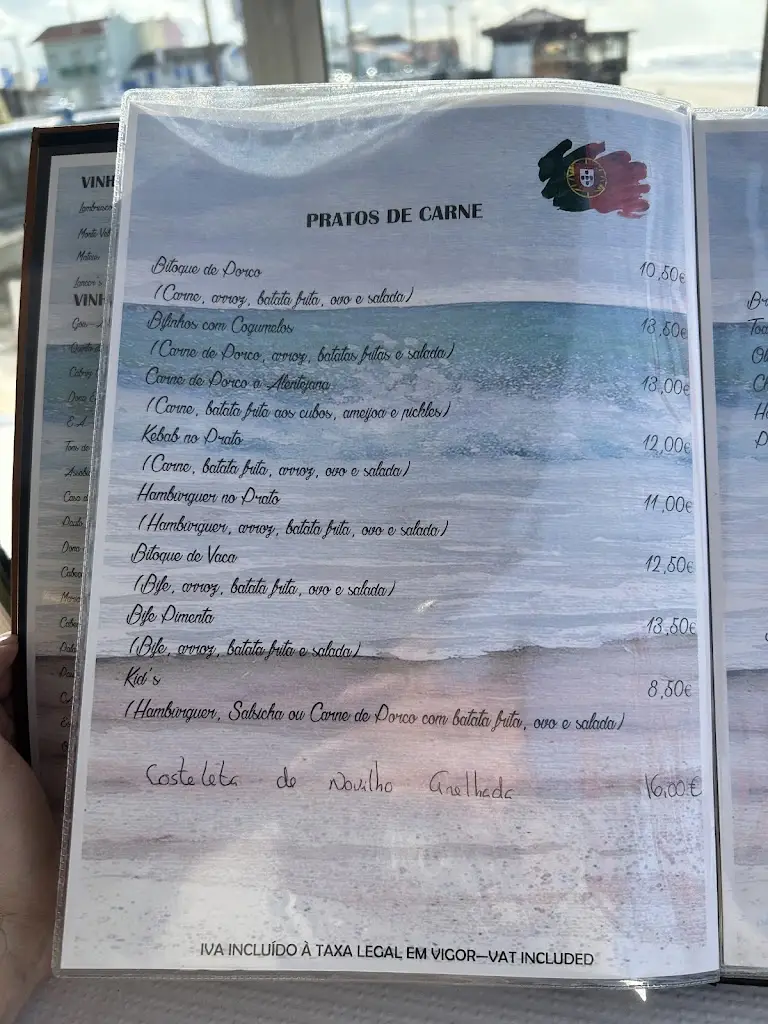 PRATOS DE CARNE
Bitoque de Porco 10,50€
(Carne, arroz, batata frita, ovo e salada)
Bifinhos com Cogumelos 13,50€
(Carne de Porco, arroz, batatas fritas e salada)
Carne de Porco à Alentejana 13,00€
(Carne, batata frita aos cubos, ameijoa e pickles)
Kebab no Prato 12,00€
(Carne, batata frita, arroz, ovo e salada)
Hambúrguer no Prato 11,00€
(Hambúrguer, arroz, batata frita, ovo e salada)
Bitoque de Vaca 12,50€
(Bife, arroz, batata frita, ovo e salada)
Bife Pimenta 13,50€
(Bife, arroz, batata frita e salada)
Kid's 8,50€
(Hambúrguer, Salsicha ou Carne de Porco com batata frita, ovo e salada)
Costeleta de Novilho Grelhada 16,00€
IVA INCLUÍDO À TAXA LEGAL EM VIGOR—VAT INCLUDED